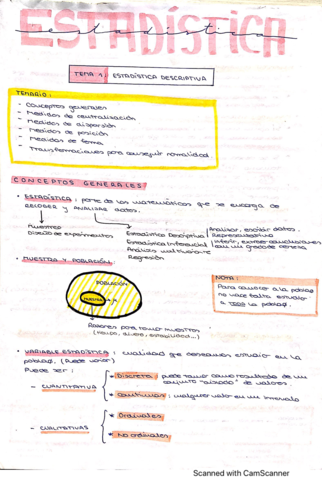 ESTADÍSTICA
estadística
TEMA 1: ESTADÍSTICA DESCRIPTIVA
TEMARIO:
- Conceptos generales
- Medidas de centralización
- Medidas de dispersión
- Medidas de posición
- Medidas de forma
- Transformaciones para conseguir normalidad.
CONCEPTOS GENERALES
• ESTADÍSTICA: parte de las matemáticas que se encarga de
RECOGER y ANALIZAR datos.
Muestreo
Diseño de experimentos
Estadística Descriptiva
Analizar, describir datos.
Representarlos
Estadística Inferencial
Inferir, extraer conclusiones
con un grado de certeza
Análisis multivariante
Regresión
• MUESTRA Y POBLACIÓN:
POBLACIÓN
MUESTRA
Razones para tomar muestras
NOTA:
Para conocer a la poblac.
no hace falta estudiar
a TODA la poblac.
• VARIABLE ESTADÍSTICA: cualidad que deseamos estudiar en la
poblac. (Puede variar)
Puede ser:
- CUANTITATIVA
• Discreta: puede tomar como resultado de un
conjunto "aislado" de valores.
• Continuas: cualquier valor en un intervalo
- CUALITATIVAS
• Ordinales
• No ordinales
Scanned with CamScanner